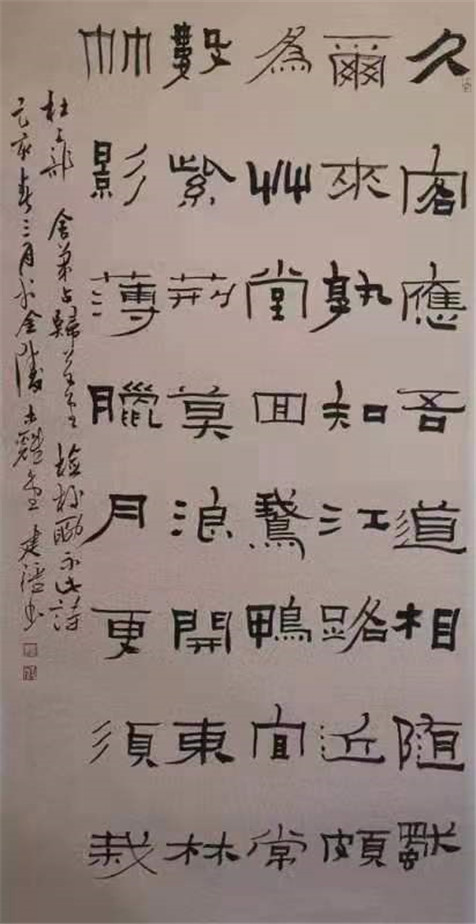 久客應吾道相隨獨
爾來孰知江路近頻
為艸堂回鵝鴨宜常
數紫荊莫浪開東林
竹影薄臘月更須栽
杜工部 舍弟占歸草堂檢校聊示此詩
己亥春三月於金陵 建 書